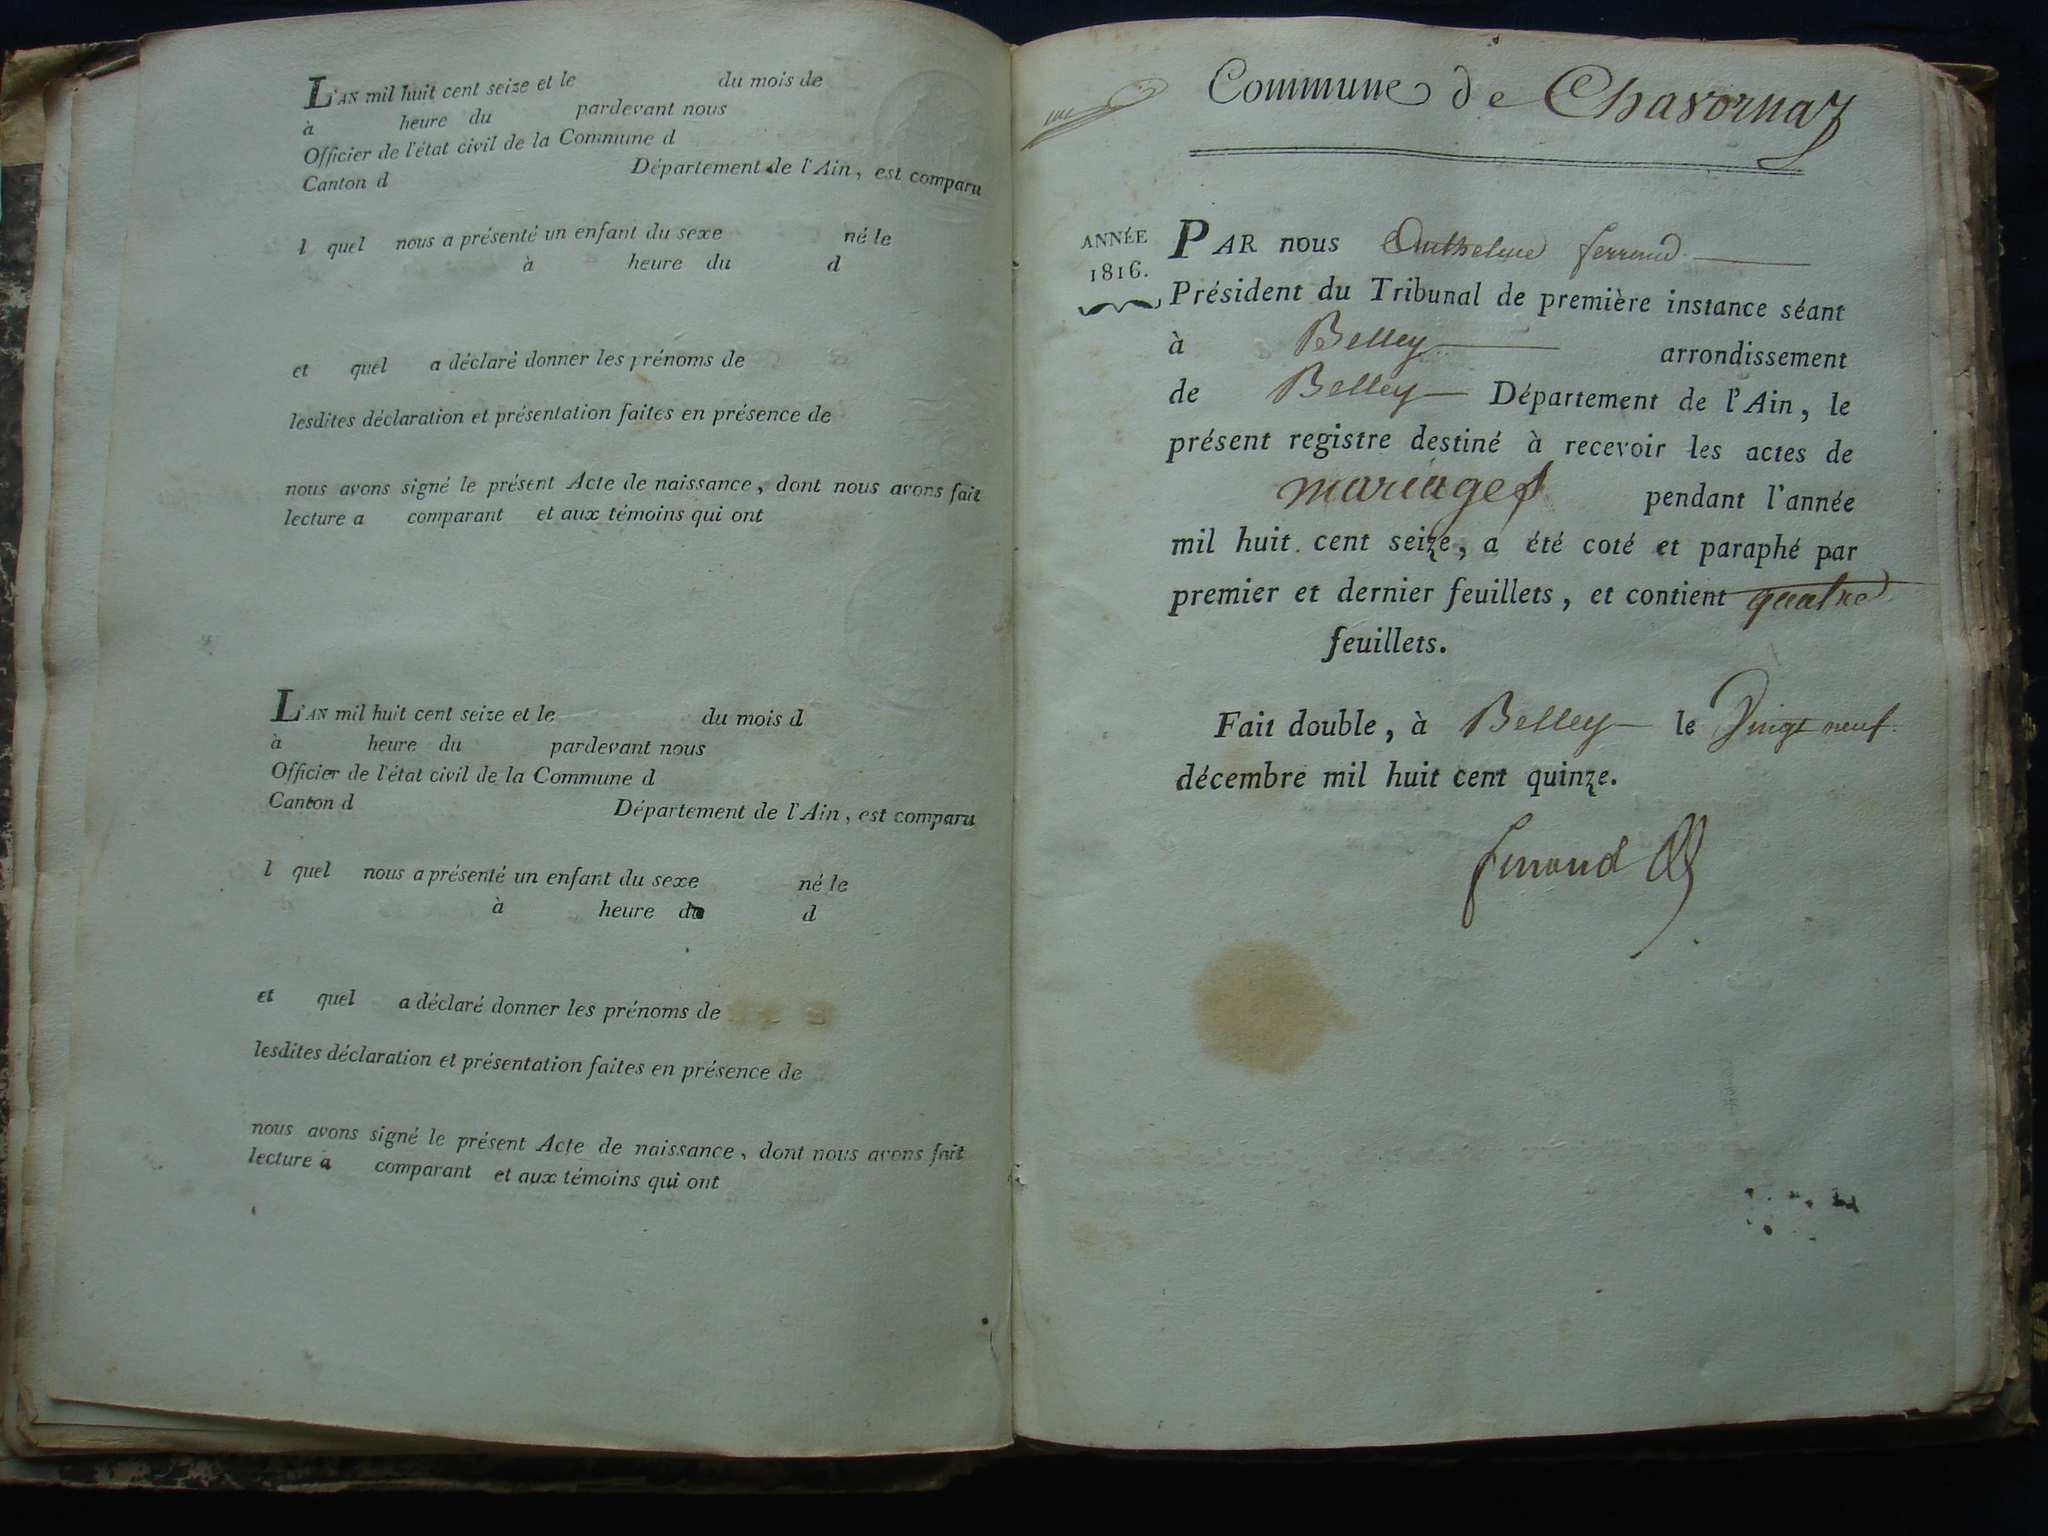 L'AN mil huit cent seize et le du mois de
à heure du pardevant nous
Officier de l'état civil de la Commune d
Canton d Département de l'Ain, est comparu
l quel nous a présenté un enfant du sexe né le
à heure du d
et quel a déclaré donner les prénoms de
lesdites déclaration et présentation faites en présence de
nous avons signé le présent Acte de naissance, dont nous avons fait
lecture a comparant et aux témoins qui ont
L'AN mil huit cent seize et le du mois d
à heure du pardevant nous
Officier de l'état civil de la Commune d
Canton d Département de l'Ain, est comparu
l quel nous a présenté un enfant du sexe né le
à heure du d
et quel a déclaré donner les prénoms de
lesdites déclaration et présentation faites en présence de
nous avons signé le présent Acte de naissance, dont nous avons fait
lecture a comparant et aux témoins qui ont
Commune de Chavornay
ANNÉE
1816.
PAR nous Anthelme ferrand
Président du Tribunal de première instance séant
à Belley arrondissement
de Belley Département de l'Ain, le
présent registre destiné à recevoir les actes de
mariages pendant l'année
mil huit cent seize, a été coté et paraphé par
premier et dernier feuillets, et contient quatre
feuillets.
Fait double, à Belley le Vingt neuf
décembre mil huit cent quinze.